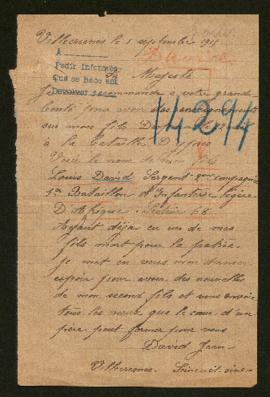 Villecresnes le 1 septembre 1915
A
Pedir informes
Que se hace así
Devolver
Majesté
Je me recommande à votre grande
bonté pour avoir des renseignements
sur mon fils
14294
à la bataille
Voici le nom de mon fils
Louis David Sergent 8me compagnie
1er Bataillon d'Infanterie légère
D'Afrique Secteur 68
Ayant déjà eu un de mes
fils mort pour la patrie
Je met en vous mon dernier
espoir pour avoir des nouvelles
de mon second fils et vous envoie
tous les vœux que le cœur d'un
père peut former pour vous
David Jean
Villecresnes Seine-et-Oise